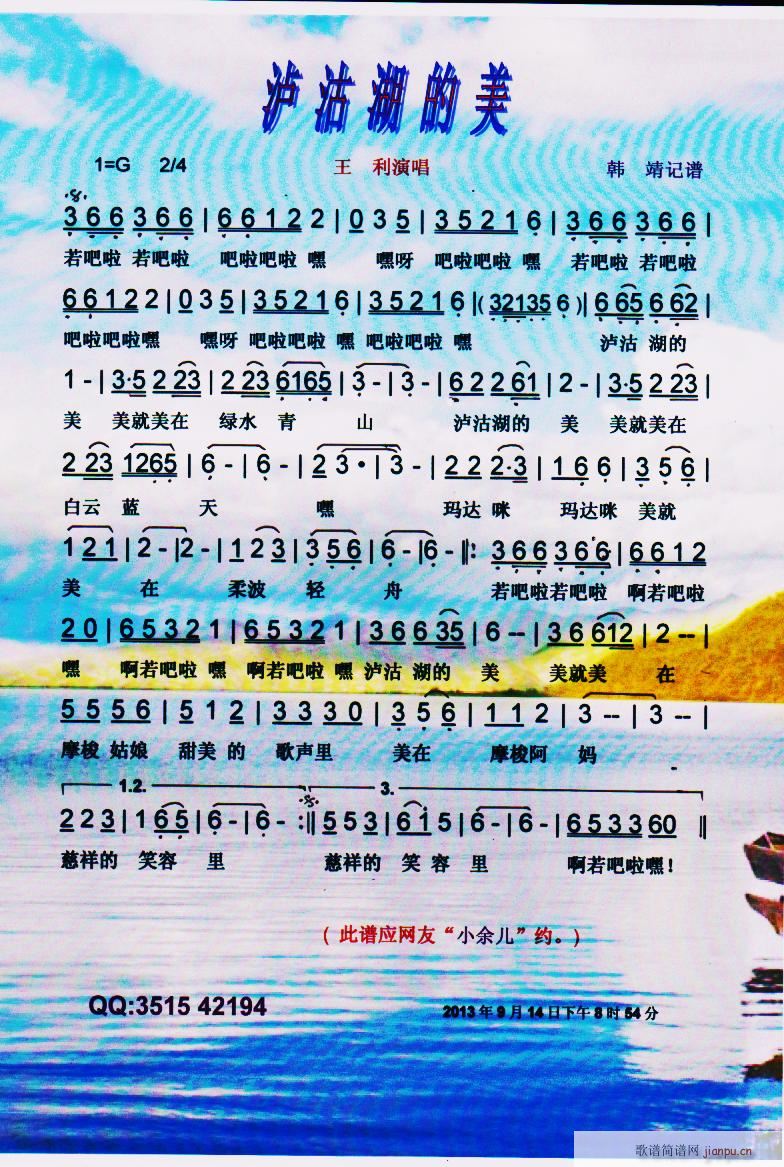 泸沽湖的美
1=G 2/4 王 利演唱 韩 靖记谱
3 6 6 3 6 6 | 6 6 1 2 2 2 | 0 3 5 | 3 5 2 1 6 | 3 6 6 3 6 6 |
若吧啦 若吧啦 吧啦吧啦 嘿 嘿呀 吧啦吧啦 嘿 若吧啦 若吧啦
6 6 1 2 2 2 | 0 3 5 | 3 5 2 1 6 | 3 5 2 1 6 |( 32135 6 )| 6 65 6 62 |
吧啦吧啦嘿 嘿呀 吧啦吧啦 嘿 吧啦吧啦 嘿 泸沽 湖的
1 - | 3·5 2 23 | 2 23 6165 | 3 - | 3 - | 6 2 2 61 | 2 - | 3·5 2 23 |
美 美就美在 绿水 青 山 泸沽湖的 美 美就美在
2 23 1265 | 6 - | 6 - | 2 3 • | 3 - | 2 2 2 2·3 | 1 6 6 | 3 5 6 |
白云 蓝 天 嘿 玛达 咪 玛达咪 美就
1 2 1 | 2 - | 2 - | 1 2 3 | 3 5 6 | 6 - | 6 - ‖: 3 6 6 3 6 6 | 6 6 1 2
美 在 柔波 轻 舟 若吧啦若吧啦 啊若吧啦
2 0 | 6 5 3 2 1 | 6 5 3 2 1 | 3 6 6 35 | 6 - - | 3 6 612 | 2 - - |
嘿 啊若吧啦 嘿 啊若吧啦 嘿 泸沽 湖的 美 美就美 在
5 5 5 6 | 5 1 2 | 3 3 3 0 | 3 5 6 | 1 1 2 | 3 - - | 3 - - |
摩梭 姑娘 甜美 的 歌声里 美在 摩梭阿 妈
1.2. 3.
2 2 3 | 1 6 5 | 6 - | 6 - :‖ 5 5 3 | 6 1 5 | 6 - | 6 - | 6 5 3 3 6 0 ‖
慈祥的 笑容 里 慈祥的 笑 容 里 啊若吧啦嘿！
（此谱应网友“小余儿”约。）
QQ:3515 42194 2013年9月14日下午8时54分
歌谱简谱网 jianpu.cn